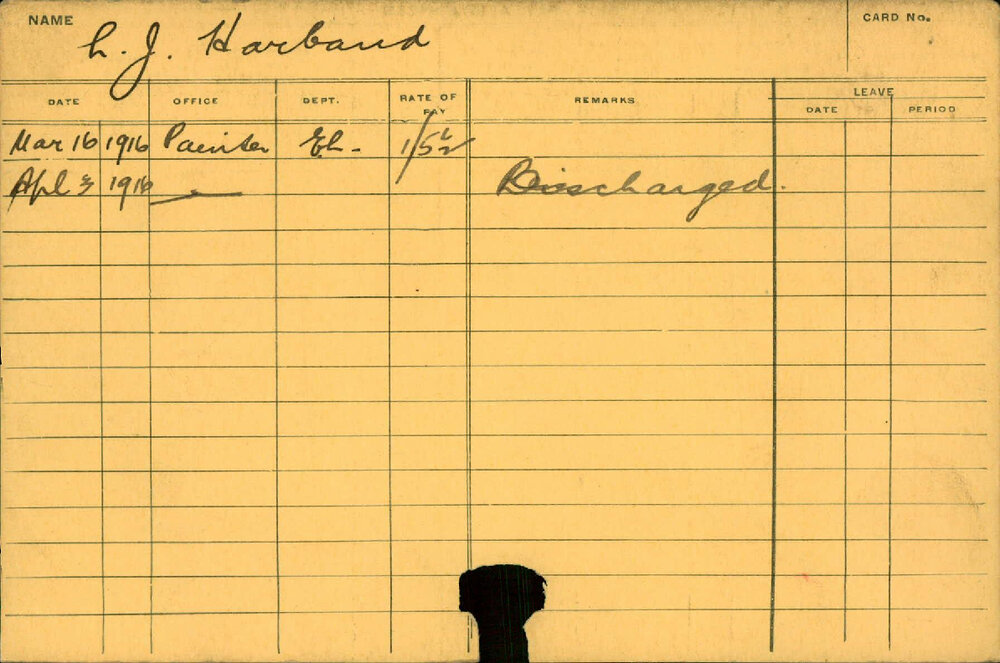 NAME
L. J. Harband
CARD No.
DATE OFFICE DEPT. RATE OF PAY REMARKS LEAVE
DATE PERIOD
Mar 16 1916 Painter
Apl 3 1916 — Discharged.